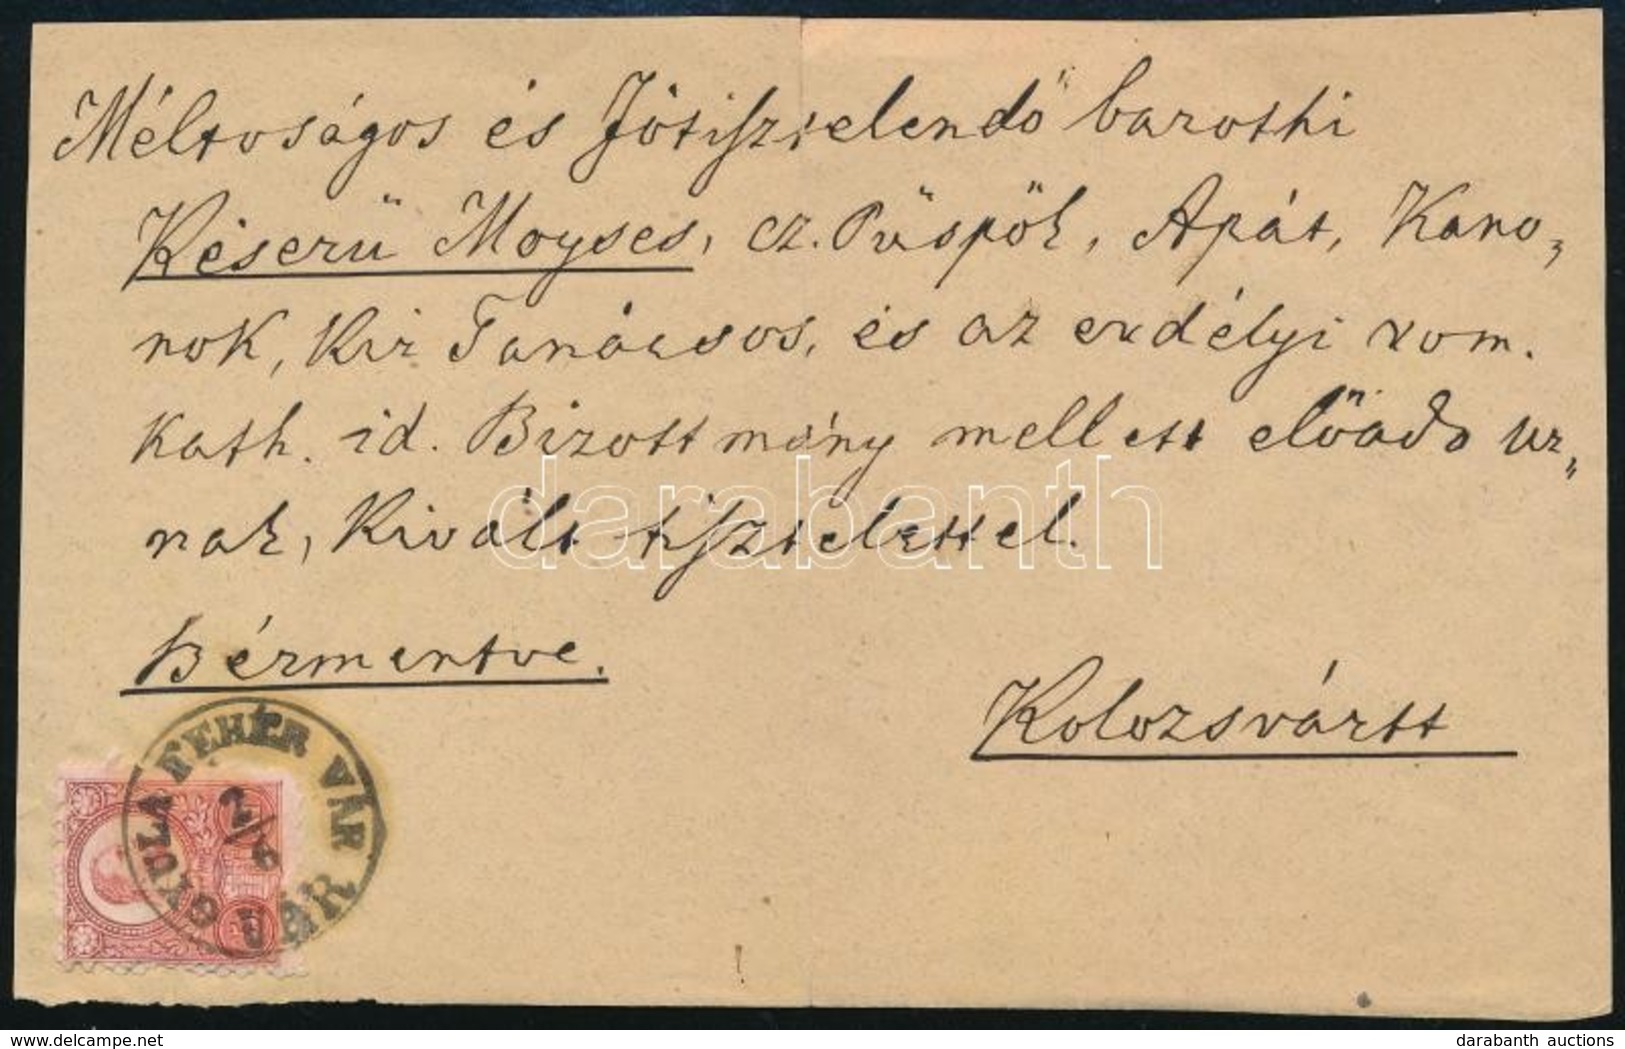 Méltoságos és Főtisztelendő barothi
Keserü Moyses, cz. Püspök, Apát, Kano„
nok, Kir Tanácsos, és az erdélyi rom.
Kath. id. Bizottmány mellett előado ur„
nak, Kivált tisztelettel.
Bérmentve.
Kolozsvártt
GYULA FEHÉR VÁR
2/6
VÁR
darabanth
delcampe.net
darabanth auctions